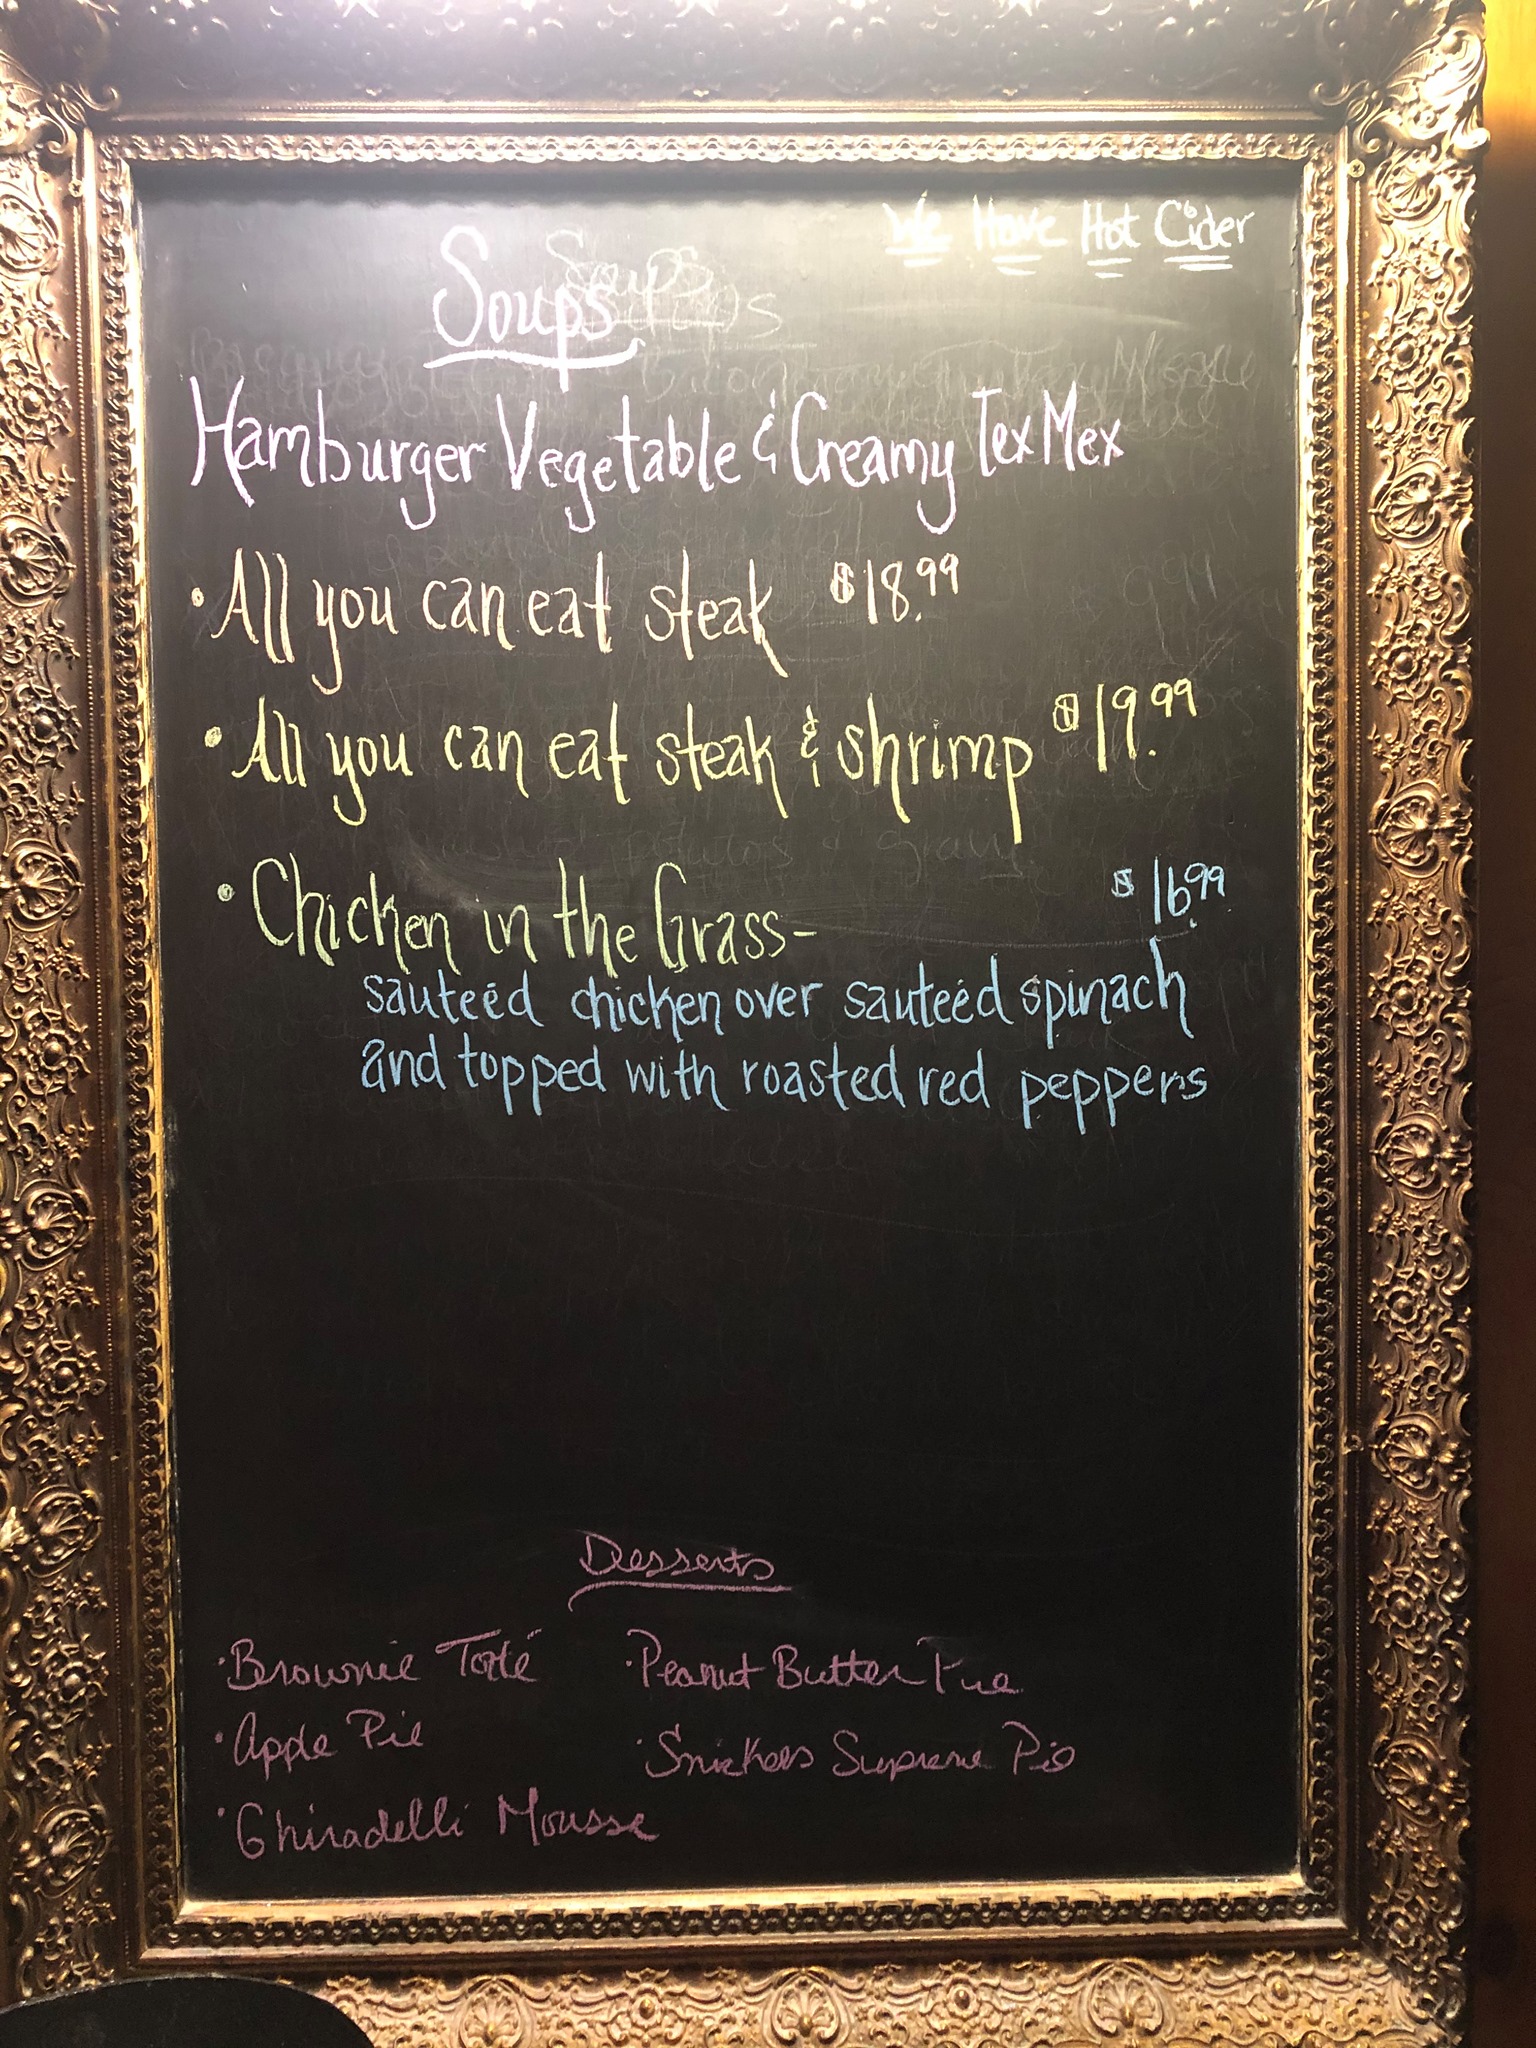 We Have Hot Cider
Soups
Hamburger Vegetable & Creamy Tex Mex
• All you can eat steak $18.99
• All you can eat steak & shrimp $19.99
• Chicken in the Grass- $16.99
sauteéd chicken over sauteéd spinach
and topped with roasted red peppers
Desserts
• Brownie Torte • Peanut Butter Pie
• Apple Pie • Snickers Supreme Pie
• Ghiradelli Mousse